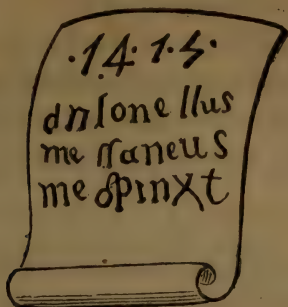 ·1·4·1·5·
dnſonellus
meſſaneus
me pinxt